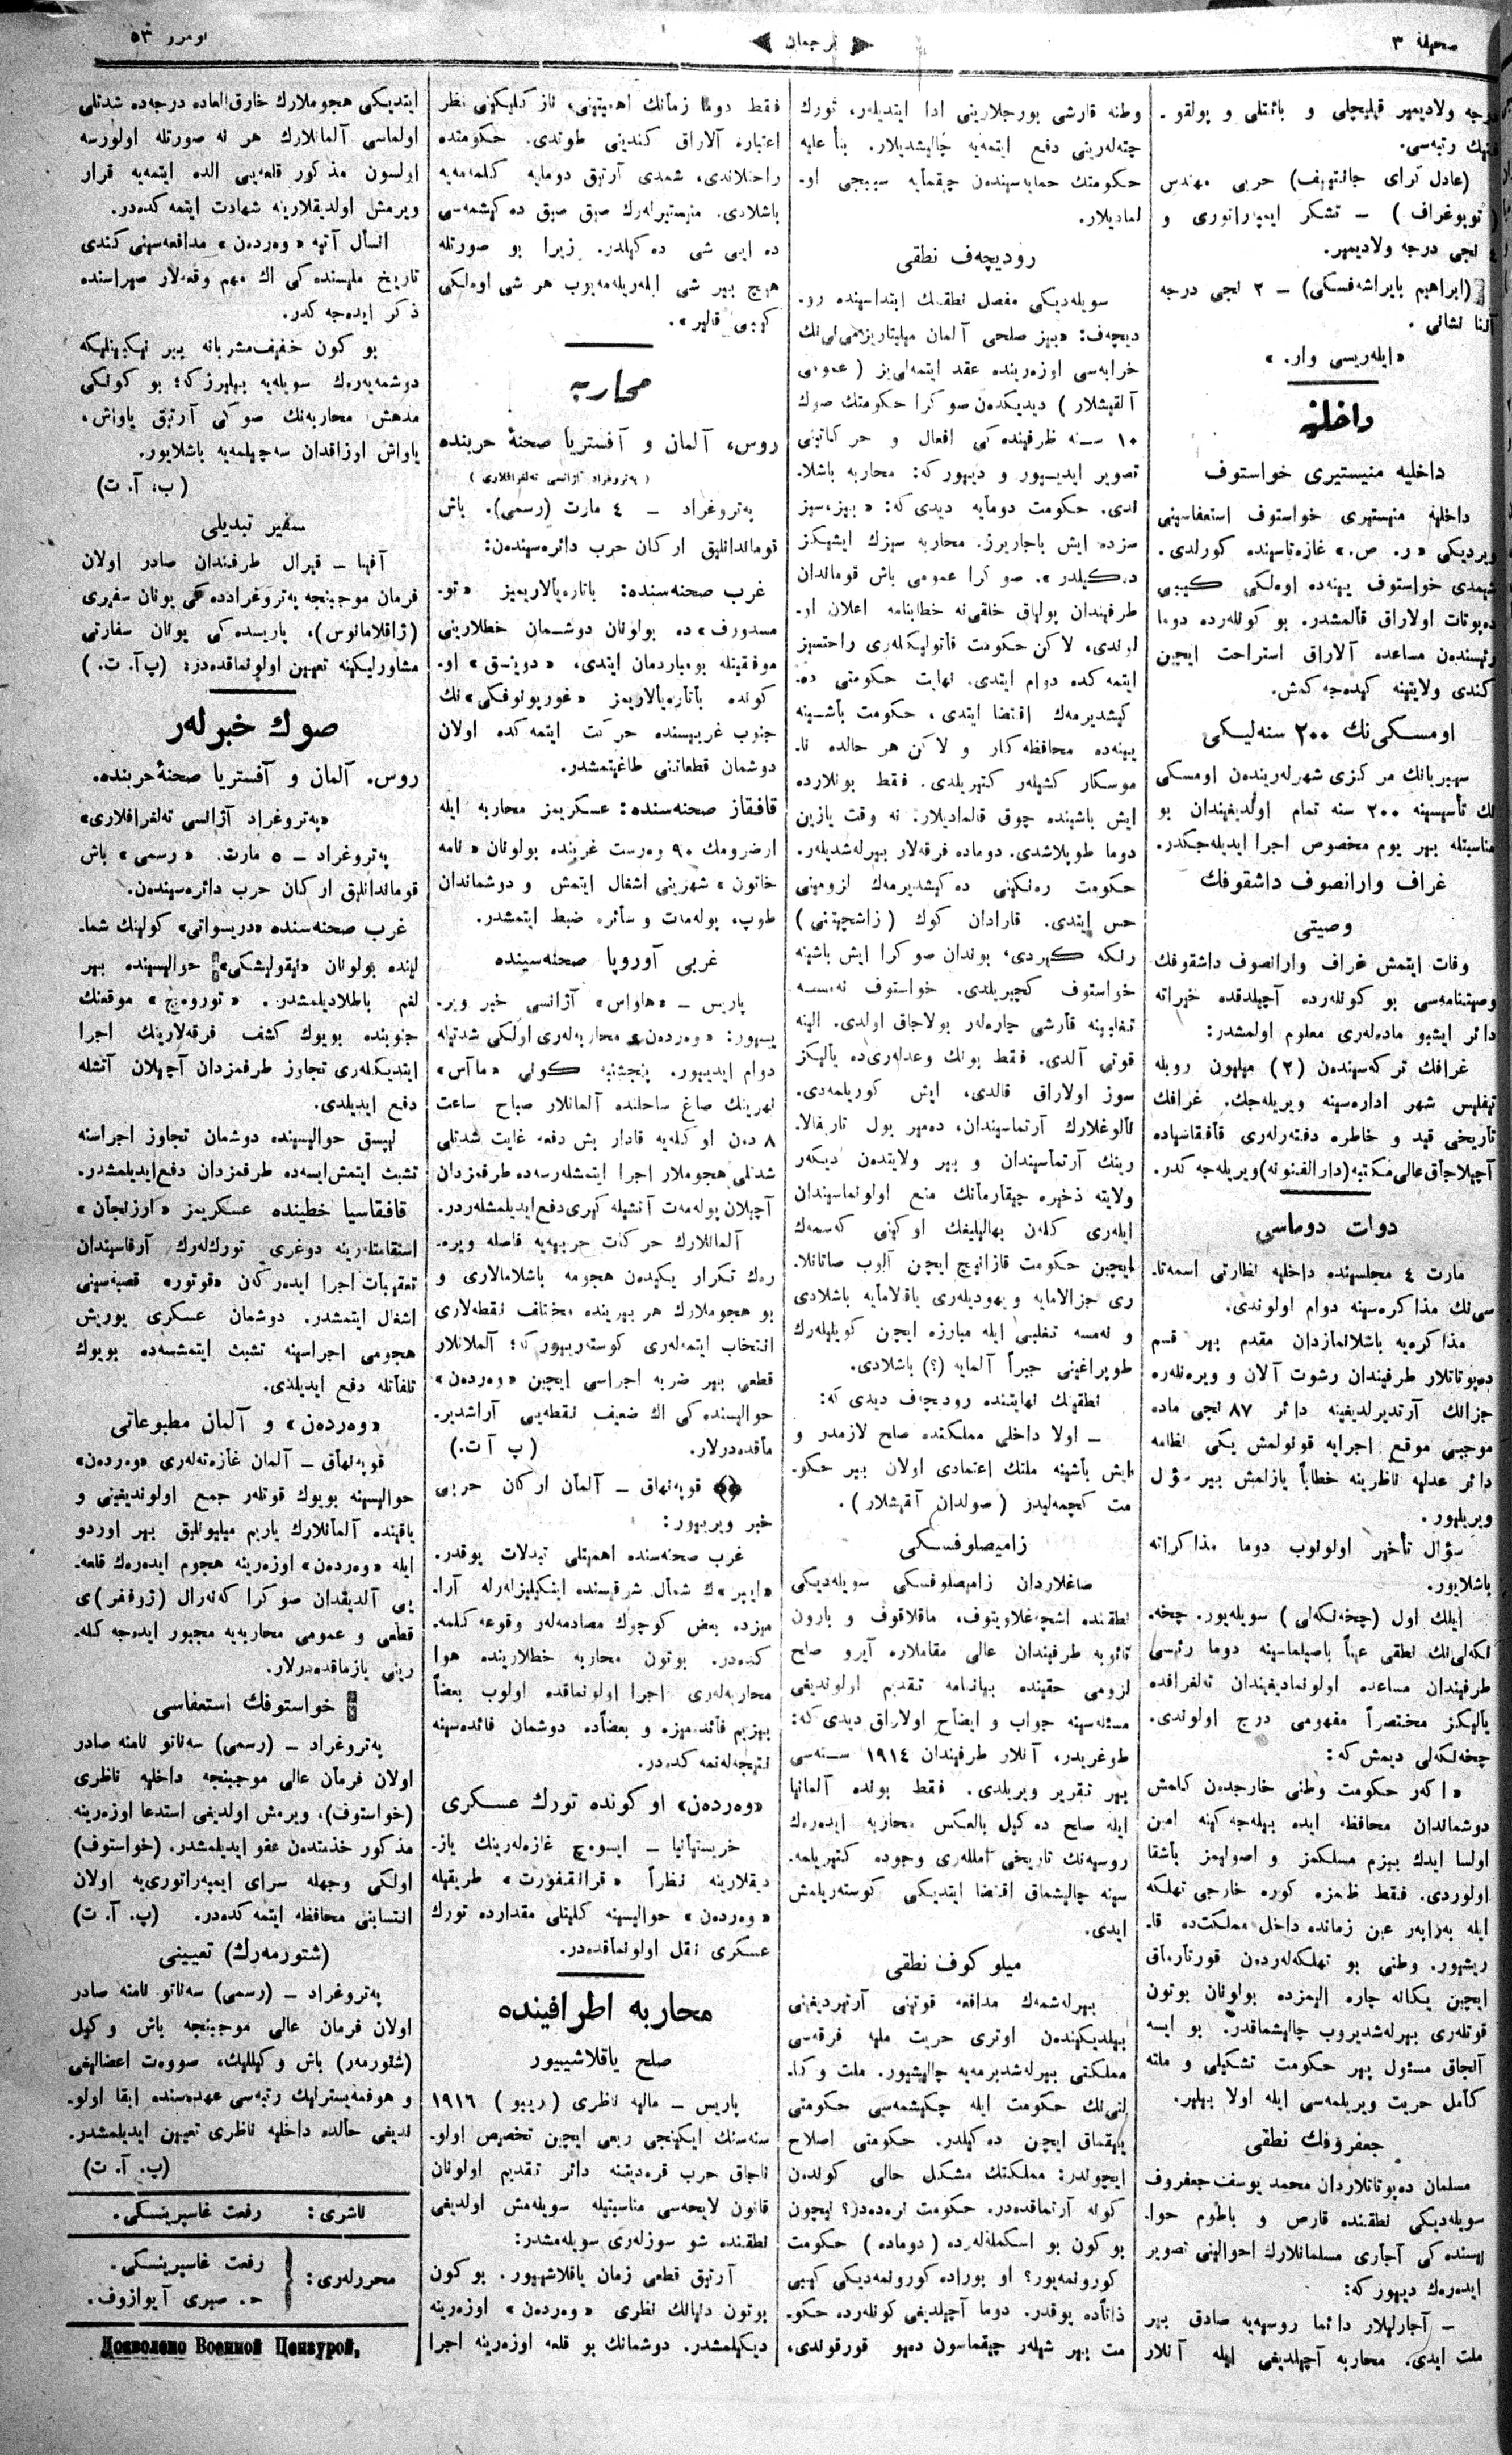 صحیفه ۳
ترجمان
نومرو ۵۳
درجه ولادیمیر قیلیچلی و بانتلی و پولقو۔
رتبه‌سی.
(عادل کرای جانتییف) حربی مهندس
(توپوغراف) – تشکر ایمپراتوری و
٤ نجی درجه ولادیمیر.
(ابراهیم بایراشه‌فسکی) – ۲ نجی درجه
آننا نشانی .
«ایله‌ریسی وار. »
داخلیه
داخلیه منیستیری خواستوف
داخلیه منیستیری خواستوف استعفاسینی
ویردیکی «ر. ص.» غازه‌تاسینده کورلدی.
شیمدی خواستوف یینه‌ده اوه‌لکی کیبی
ده‌پوتات اولاراق قالمشدر. بو کونله‌رده دوما
رئیسندن مساعده آلاراق استراحت ایچین
کندی ولایتینه کیده‌جه‌کمش.
اومسکی‌نك ۲۰۰ سنه‌لیکی
سیبریانك مرکزی شهرله‌ریندن اومسکی
نك تأسیسینه ۲۰۰ سنه تمام اولدیغیندان بو
مناسبتله بیر یوم مخصوص اجرا ایدیله‌جکدر.
غراف وارانصوف داشقوفك
وصیتی
وفات ایتمش غراف وارانصوف داشقوفك
وصیتنامه‌سی بو کونله‌رده آچیلدقده خیراته
دائر ایشبو ماده‌له‌ری معلوم اولمشدر:
غرافك ترکه‌سیندن (۲) میلیون روبله
تیفلیس شهر اداره‌سینه ویریله‌جك. غرافك
تاریخی قید و خاطره دفته‌رله‌ری قافقاسیاده
آچیلاجاق عالی مکتبه (دارالفنونه) ویریله‌جه‌کدر.
دوات دوماسی
مارت ٤ مجلسینده داخلیه نظارتی اسمه‌تا۔
سی‌نك مذاکره‌سینه دوام اولوندی.
مذاکره‌یه باشلانمازدان مقدم بیر قسم
ده‌پوتاتلار طرفیندان رشوت آلان و ویره‌نله‌ره
جزانك آرتدیرلدیغینه دائر ۸۷ نجی ماده
موجبی موقع اجرایه قونولمش یکی نظامه
دائر عدلیه ناظرینه خطاباً یازلمش بیر سؤال
ویریلیور.
سؤال تأخیر اولونوب دوما مذاکراته
باشلایور.
ایلك اول (چخه‌نکه‌لی) سویله‌یور. چخه۔
نکه‌لی‌نك نطقی عیناً باصیلماسینه دوما رئیسی
طرفیندان مساعده اولونمادیغیندان ته‌لغرافده
یالیکز مختصراً مفهومی درج اولوندی.
چخه‌نکه‌لی دیمش که:
«اکر حکومت وطنی خارجدن کلمش
دوشماندان محافظه ایده بیله‌جه‌کینه امین
اولسا ایدك بیزم مسلکمز و اصولیمز باشقا
اولوردی. فقط ظنمزه کوره خارجی تهلکه
ایله به‌رابه‌ر عین زمانده داخل مملکت‌ده قا۔
ریشیور. وطنی بو تهلکه‌له‌ردن قورتارماق
ایچین یکانه چاره الیمزده بولونان بوتون
قوتله‌ری بیرله‌شدیروب چالیشماقدر. بو ایسه
آنجاق مسئول بیر حکومت تشکیلی و ملته
کامل حریت ویریلمه‌سی ایله اولا بیلیر.
جعفروفك نطقی
مسلمان ده‌پوتاتلاردان محمد یوسف جعفروف
سویله‌دیکی نطقنده قارص و باطوم حوا۔
لیسنده کی آجاری مسلمانلارك احوالینی تصویر
ایده‌رەك دییور که:
– آجارلیلار دائما روسیه‌یه صادق بیر
ملت ایدی. محاربه آچیلدیغی ایله آنلار
وطنه قارشی بورجلارینی ادا ایتدیله‌ر، تورك
چته‌له‌رینی دفع ایتمه‌یه چالیشدیلار. بنأ علیه
حکومتك حمایه‌سیندەن چیقمایه سببجی او۔
لمادیلار.
رودیچەف نطقی
سویله‌دیکی مفصل نطقینك ابتداسینده رو۔
دیچەف: «بیز صلحی آلمان میلیتاریزمی‌نی‌نك
خرابه‌سی اوزه‌رینده عقد ایتمه‌لی‌یز (عمومی
آلقیشلار) دیدیکدەن صوکرا حکومتك صوك
۱۰ سنه ظرفینده کی افعال و حرکاتینی
تصویر ایدییور و دییور که: محاربه باشلا۔
ندی. حکومت دومایه دیدی که: «بیز، سیز
سزده ایش باجاریرز. محاربه سیزك ایشیکز
دکیلدر». صوکرا عمومی باش قوماندان
طرفیندان پولیاق خلقی‌نه خطابنامه اعلان او۔
لوندی، لاکن حکومت قاتولیکله‌ری راحتسیز
ایتمه‌کده دوام ایتدی. نهایت حکومتی ده۔
کیشدیرمه‌ك اقتضا ایتدی، حکومت باشینه
یینه‌ده محافظه‌کار و لاکن هر حالده نا۔
موسکار کشیله‌ر کتیریلدی. فقط بونلارده
ایش باشینده چوق قالمادیلار: نه وقت یازین
دوما طوپلاشدی. دوماده فرقه‌لار بیرله‌شدیله‌ر.
حکومت رەنکینی ده‌کیشدیرمه‌ك لزومینی
حس ایتدی. قارادان کوك (زاشچیتنی)
رنکه کیردی، بوندان صوکرا ایش باشینه
خواستوف کچیریلدی. خواستوف نەمسه
تغلبینه قارشی چاره‌له‌ر بولاجاق اولدی. الینه
قوتی آلدی. فقط بونك وعدله‌ری‌ده یالیکز
سوز اولاراق قالدی، ایش کورلمه‌دی.
نالوغلارك آرتماسیندان، ده‌میر یول تاریفالا۔
رینك آرتماسیندان و بیر ولایتدەن دیکەر
ولایته ذخیره چیقارمانك منع اولونماسیندان
ایله‌ری کله‌ن بهالیلیغك اوکینی که‌سمه‌ك
ایچین حکومت قازانیج ایچن آلوب صاتانلا۔
ری جزالامایه و یهودیله‌ری یاقلامایه باشلادی
و نەمسه تغلبی ایله مبارزه ایچن کویلیله‌رك
طوپراغینی جبراً آلمایه (؟) باشلادی.
نطقینك نهایتنده رودیچەف دیدی که:
– اولا داخلی مملکتده صلح لازمدر و
ایش باشینه ملتك اعتمادی اولان بیر حکو۔
مت کچمه‌لیدر (صولدان آلقیشلار).
زامیصلوفسکی
صاغلاردان زامیصلوفسکی سویله‌دیکی
نطقنده اشچه‌غلاویتوف، ماقلاقوف و بارون
تائوبه طرفیندان عالی مقاملاره آیرو صلح
لزومی حقینده بیانامه تقدیم اولوندیغی
مسئله‌سینه جواب و ایضاح اولاراق دیدی که:
طوغریدر، آنلار طرفیندان ۱۹۱٤ سنه‌سی
بیر تقریر ویریلدی. فقط بونده آلمانیا
ایله صلح ده‌کیل بالعکس محاربه ایده‌رەك
روسیه‌نك تاریخی امللەری وجوده کتیریلمه۔
سینه چالیشماق اقتضا ایتدیکی کوسته‌ریلمش
ایدی.
میلوکوف نطقی
بیرله‌شمه‌ك مدافعه قوتینی آرتیردیغینی
بیلدیکیندەن اوتری حریت ملیه فرقه‌سی
مملکتی بیرله‌شدیرمه‌یه چالیشیور. ملت و کا۔
نی‌نك حکومت ایله چکیشمه‌سی حکومتی
ییقماق ایچن ده‌کیلدر. حکومتی اصلاح
ایچوندر: مملکتك مشکل حالی کوندەن
کونه آرتماقده‌در. حکومت نرەده‌در؟ نیچون
بو کون بو اسکمله‌له‌رده (دوماده) حکومت
کورونمه‌یور؟ او بوراده کورونمه‌دیکی کیبی
ذاتاًده یوقدر. دوما آچیلدیغی کونله‌رده حکو۔
مت بیر شیله‌ر چیقماسون دەیو قورقوندی،
فقط دوما زمانك اهمیتینی، نازکلیکینی نظر
اعتباره آلاراق کندینی طوتدی. حکومتده
راحتلاندی، شمدی آرتیق دومایه کلمه‌مه‌یه
باشلادی. منیستیرله‌رك صیق صیق ده‌کیشمه‌سی
ده ایی شی ده‌کیلدر. زیرا بو صورتله
هیچ بیر شی ایله‌ریله‌مه‌یوب هر شی اوه‌لکی
کیبی قالیر».
محاربه
روس، آلمان و آفستریا صحنهٔ حربنده
(پەتروغراد آژانسی تەلغرافلاری)
پەتروغراد – ٤ مارت (رسمی). باش
قوماندانلیق ارکان حرب دائره‌سیندن:
غرب صحنه‌سنده: باتاره‌یالاریمیز «تو۔
مسدورف»ده بولونان دوشمان خطلارینی
موفقیتله بومباردمان ایتدی، «دوینسق» او۔
کونده باتاره‌یالاریمز «غوربونوفکی»نك
جنوب غربیسنده حرکت ایتمه‌کده اولان
دوشمان قطعاتنی طاغیتمشدر.
قافقاز صحنه‌سنده: عسکریمز محاربه ایله
ارضرومك ۹۰ وه‌رست غربنده بولونان «مامه
خاتون» شهرینی اشغال ایتمش و دوشماندان
طوپ، پوله‌مات و سائره ضبط ایتمشدر.
غربی آوروپا صحنه‌سینده
پاریس – «هاواس» آژانسی خبر ویر۔
یییور: «وەردەن» محاربه‌له‌ری اولکی شدتیله
دوام ایدییور. پنجشنبه کونی «ماآس»
نهرینك صاغ ساحلنده آلمانلار صباح ساعت
۸ دەن اوکله‌یه قادار بش دفعه غایت شدتلی
شدتلی هجوملار اجرا ایتمشلەرسه‌ده طرفمزدان
آچیلان پوله‌مه‌ت آتشیله کیری دفع ایدیلمشله‌ردر.
آلمانلارك حرکات حربییه‌یه فاصله ویره۔
رەك تکرار یکیدەن هجومه باشلامالاری و
بو هجوملارك هر بیرینده مختلف نقطه‌لاری
انتخاب ایتمه‌له‌ری کوسته‌رییور که؛ آلمانلار
قطعی بیر ضربه اجراسی ایچین «وەردەن»
حوالیسنده کی اك ضعیف نقطه‌یی آراشدیر۔
ماقده‌درلار. (پ آ ت.)
قوپه‌نهاق – آلمان ارکان حربی
خبر ویرییور:
غرب صحنه‌سنده اهمیتلی تبدلات یوقدر.
«ایپر»ك شمال شرقیسنده اینکیلیزله‌رله آرا۔
میزده بعض کوچوك مصادمه‌له‌ر وقوعه کلمه۔
کده‌در. بوتون محاربه خطلارینده هوا
محاربه‌له‌ری اجرا اولونماقده اولوب بعضاً
بیزیم فائده‌میزه و بعضاًده دوشمان فائده‌سینه
نتیجه‌له‌نمه‌کده‌در.
«وەردەن» اوکونده تورك عسکری
خریستیانیا – ایسوه‌چ غازەله‌رینك یاز۔
دیقلارینه نظراً «فرانقفورت» طریقیله
«وەردەن» حوالیسینه کلیتلی مقدارده تورك
عسکری نقل اولونماقده‌در.
محاربه اطرافینده
صلح یاقلاشییور
پاریس – مالیه ناظری (ریبو) ۱۹۱٦
سنه‌سنك ایکینجی ربعی ایچین تخصیص اولو۔
ناجاق حرب قره‌دیتنه دائر تقدیم اولونان
قانون لایحه‌سی مناسبتیله سویله‌مش اولدیغی
نطقنده شو سوزله‌ری سویله‌مشدر:
آرتیق قطعی زمان یاقلاشییور. بو کون
بوتون دنیانك نظری «وەردەن» اوزه‌رینه
دیکیلمشدر. دوشمانك بو قلعه اوزه‌رینه اجرا
ایتدیکی هجوملارك خارق‌العاده درجه‌ده شدتلی
اولماسی آلمانلارك هر نه صورتله اولورسه
اولسون مذکور قلعه‌یی الده ایتمه‌یه قرار
ویرمش اولدیقلارینه شهادت ایتمه‌کده‌در.
انسال آتیه «وەردەن» مدافعه‌سینی کندی
تاریخ ملیسنده کی اك مهم وقعه‌لار صیراسنده
ذکر ایده‌جه‌کدر.
بو کون خفیف‌مشربانه بیر نیکبینلیکه
دوشمه‌یه‌رەك سویله‌یه بیلیرز که؛ بو کونکی
مدهش محاربه‌نك صوکی آرتیق یاواش،
یاواش اوزاقدان سه‌چیلمه‌یه باشلایور.
(پ. آ. ت)
سفیر تبدیلی
آفینا – قیرال طرفندان صادر اولان
فرمان موجبنجه پەتروغرادده کی یونان سفیری
(ژاقلامانوس)، پاریسده کی یونان سفارتی
مشاورلیکینه تعیین اولونماقده‌در: (پ آ. ت.)
صوك خبرلەر
روس. آلمان و آفستریا صحنهٔ حربنده.
«پەتروغراد آژانسی تەلغرافلاری»
پەتروغراد – ٥ مارت. «رسمی» باش
قوماندانلیق ارکان حرب دائره‌سیندن.
غرب صحنه‌سنده «دریسواتی» کولینك شما۔
لینده بولونان حوالیسینده بیر
لغم پاطلادیلمشدر. موقعنك
جنوبنده بویوك کشف فرقه‌لارینك اجرا
ایتدیکله‌ری تجاوز طرفمزدان آچیلان آتشله
دفع ایدیلدی.
لیپسق حوالیسینده دوشمان تجاوز اجراسنه
تشبث ایتمش‌ایسه‌ده طرفمزدان دفع ایدیلمشدر.
قافقاسیا خطینده عسکریمز «ارزنجان»
استقامتله‌رینه دوغری تورك‌له‌رك آرقاسیندان
تعقیبات اجرا ایدەرکەن «قوتور» قصبه‌سینی
اشغال ایتمشدر. دوشمان عسکری یوریش
هجومی اجراسینه تشبث ایتمشسه‌ده بویوك
تلفاتله دفع ایدیلدی.
«وەردەن» و آلمان مطبوعاتی
قوپه‌نهاق – آلمان غازه‌ته‌له‌ری «وەردەن»
حوالیسینه بویوك قوتله‌ر جمع اولوندیغینی و
یاقینده آلمانلارك یاریم میلیونلیق بیر اوردو
ایله «وەردەن» اوزه‌رینه هجوم ایدەرەك قلعه۔
یی آلدیقدان صوکرا که‌نه‌رال (ژوففر) ی
قطعی و عمومی محاربه‌یه مجبور ایده‌جه‌کله۔
رینی یازماقده‌درلار.
خواستوفك استعفاسی
پەتروغراد – (رسمی) سه‌ناتو نامنه صادر
اولان فرمان عالی موجبینجه داخلیه ناظری
(خواستوف)، ویرمش اولدیغی استدعا اوزه‌رینه
مذکور خدمتدەن عفو ایدیلمشدر. (خواستوف)
اولکی وجهله سرای ایمپەراتوری‌یه اولان
انتسابنی محافظه ایتمه‌کده‌در. (پ. آ. ت)
(شتورمه‌رك) تعیینی
پەتروغراد – (رسمی) سه‌ناتو نامنه صادر
اولان فرمان عالی موجبینجه باش وکیل
(شتورمه‌ر) باش وکیللیك، سووه‌ت اعضالیغی
و هوفمه‌یسترلیك رتبه‌سی عهده‌سنده ابقا اولو۔
ندیغی حالده داخلیه ناظری تعیین ایدیلمشدر.
(پ. آ. ت)
ناشری: رفعت غاسپرینسکی.
محررلەری: رفعت غاسپرینسکی.
ح. صبری آیوازوف.
Дозволено Военной Цензурой,